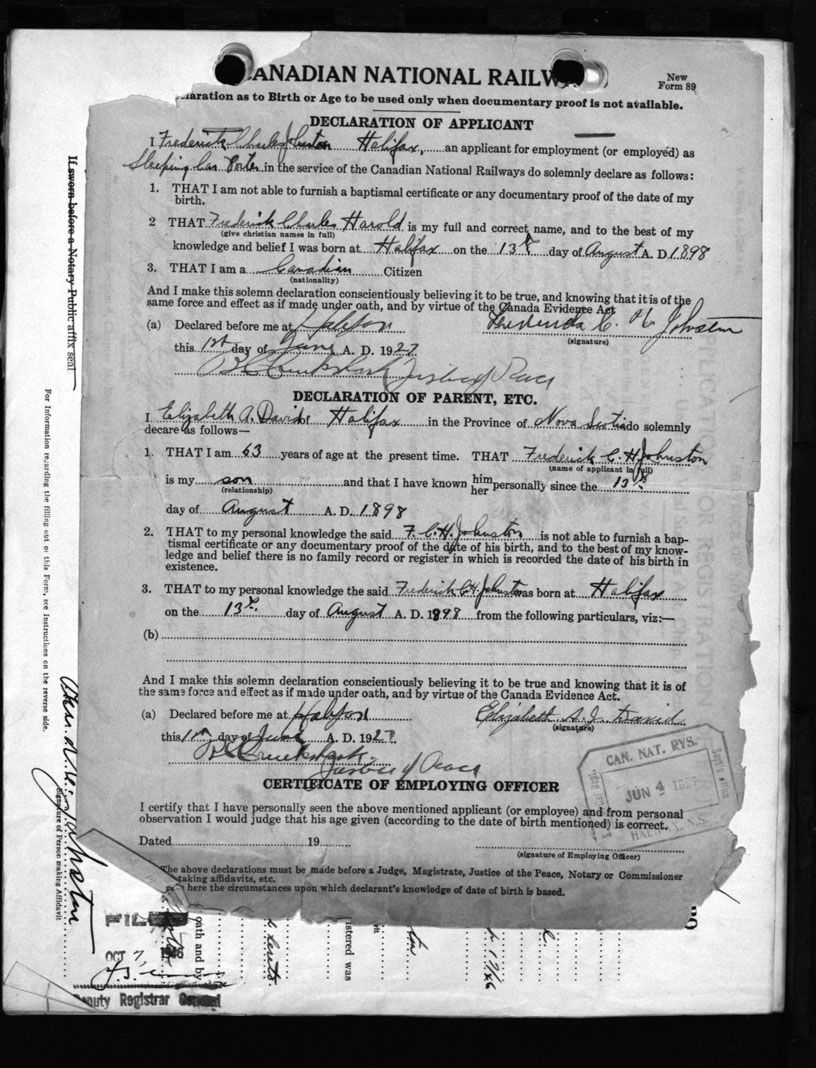 CANADIAN NATIONAL RAILW
New
Form 89
laration as to Birth or Age to be used only when documentary proof is not available.
DECLARATION OF APPLICANT
I Frederick Charles Johnston Halifax, an applicant for employment (or employed) as
Sleeping Car Porter in the service of the Canadian National Railways do solemnly declare as follows:
1. THAT I am not able to furnish a baptismal certificate or any documentary proof of the date of my
birth.
2 THAT Frederick Charles Harold is my full and correct name, and to the best of my
(give christian names in full)
knowledge and belief I was born at Halifax on the 13th day of August A. D. 1898
3. THAT I am a Canadian Citizen
(nationality)
And I make this solemn declaration conscientiously believing it to be true, and knowing that it is of the
same force and effect as if made under oath, and by virtue of the Canada Evidence Act
(a) Declared before me at Halifax
Frederick C. H. Johnston
(signature)
this 1st day of June A. D. 1927.
Justice of Peace
DECLARATION OF PARENT, ETC.
I Elizabeth A. David Halifax in the Province of Nova Scotia do solemnly
decare as follows—
1. THAT I am 63 years of age at the present time. THAT Frederick C. H. Johnston
(name of applicant in full)
is my son and that I have known him her personally since the 13th
(relationship)
day of August A. D. 1898
2. THAT to my personal knowledge the said F. C. H. Johnston is not able to furnish a bap-
tismal certificate or any documentary proof of the date of his birth, and to the best of my know-
ledge and belief there is no family record or register in which is recorded the date of his birth in
existence.
3. THAT to my personal knowledge the said Frederick C H Johnston was born at Halifax
on the 13th. day of August A. D. 1898 from the following particulars, viz:—
(b)
And I make this solemn declaration conscientiously believing it to be true and knowing that it is of
the same force and effect as if made under oath, and by virtue of the Canada Evidence Act.
(a) Declared before me at Halifax
Elizabeth A. J. David
(signature)
this 1st day of June A. D. 1927.
Justice of Peace
CAN. NAT. RYS.
JUN 4 1927
HALIFAX, N.S.
CERTIFICATE OF EMPLOYING OFFICER
I certify that I have personally seen the above mentioned applicant (or employee) and from personal
observation I would judge that his age given (according to the date of birth mentioned) is correct.
Dated 19
(signature of Employing Officer)
The above declarations must be made before a Judge, Magistrate, Justice of the Peace, Notary or Commissioner
taking affidavits, etc.
here the circumstances upon which declarant's knowledge of date of birth is based.
If sworn before a Notary Public affix seal
For Information regarding the filling out of this Form, see Instructions on the reverse side.
Johnston
Signature of Person making Affidavit
FILED
OCT 7
Deputy Registrar General
oath and by
istered was